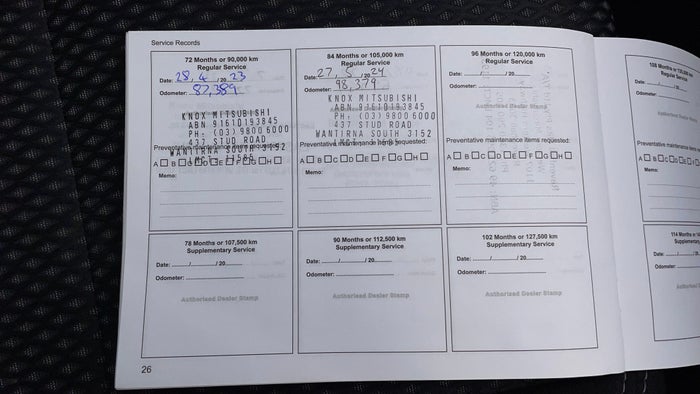 Service Records
72 Months or 90,000 km
Regular Service
Date: 28, 4 / 20 23
Odometer: 87,389
KNOX MITSUBISHI
ABN 91610193845
PH: (03) 9800 6000
437 STUD ROAD
WANTIRNA SOUTH 3152
Preventative maintenance items requested:
A B C D E F G H
Memo:
84 Months or 105,000 km
Regular Service
Date: 27, 5, /20 24
Odometer: 98,379
KNOX MITSUBISHI
ABN 91610193845
PH: (03) 9800 6000
437 STUD ROAD
WANTIRNA SOUTH 3152
Preventative maintenance items requested:
A B C D E F G H
Memo:
96 Months or 120,000 km
Regular Service
Date: / / 20
Odometer:
Authorised Dealer Stamp
Preventative maintenance items requested:
A B C D E F G H
Memo:
78 Months or 107,500 km
Supplementary Service
Date: / / 20
Odometer:
Authorised Dealer Stamp
90 Months or 112,500 km
Supplementary Service
Date: / / 20
Odometer:
Authorised Dealer Stamp
102 Months or 127,500 km
Supplementary Service
Date: / / 20
Odometer:
Authorised Dealer Stamp
26
Regular
Date:
Odometer:
Authorised Dealer
Preventative maintenance
A B C D
Memo:
114 Months or
Supplementary
Date:
Odometer: